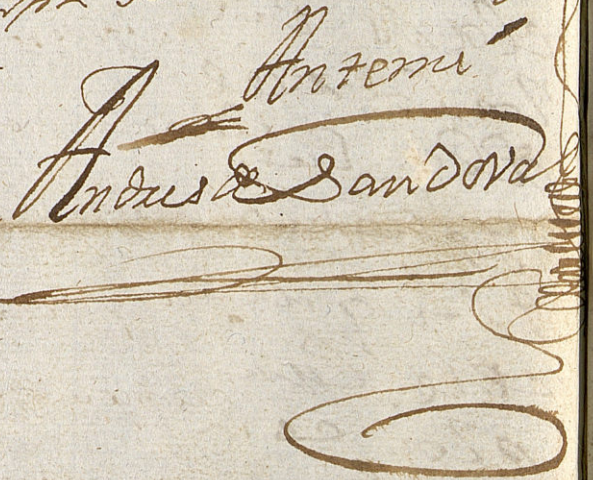 Ante mí
Andres de Sandoval